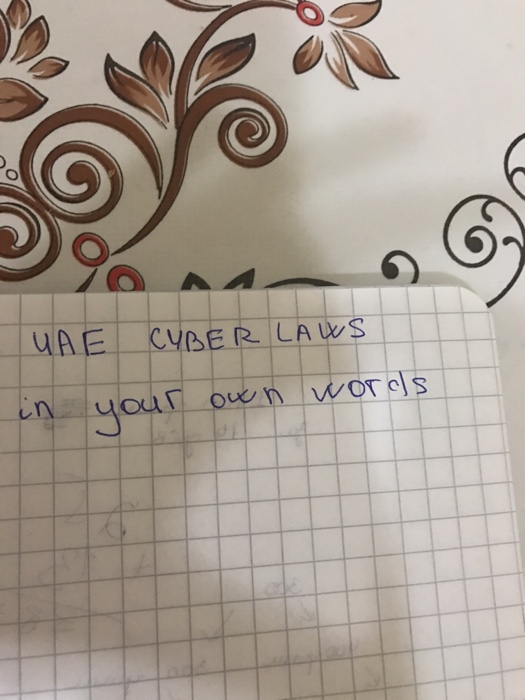 UAE CYBER LAWS
in your own words